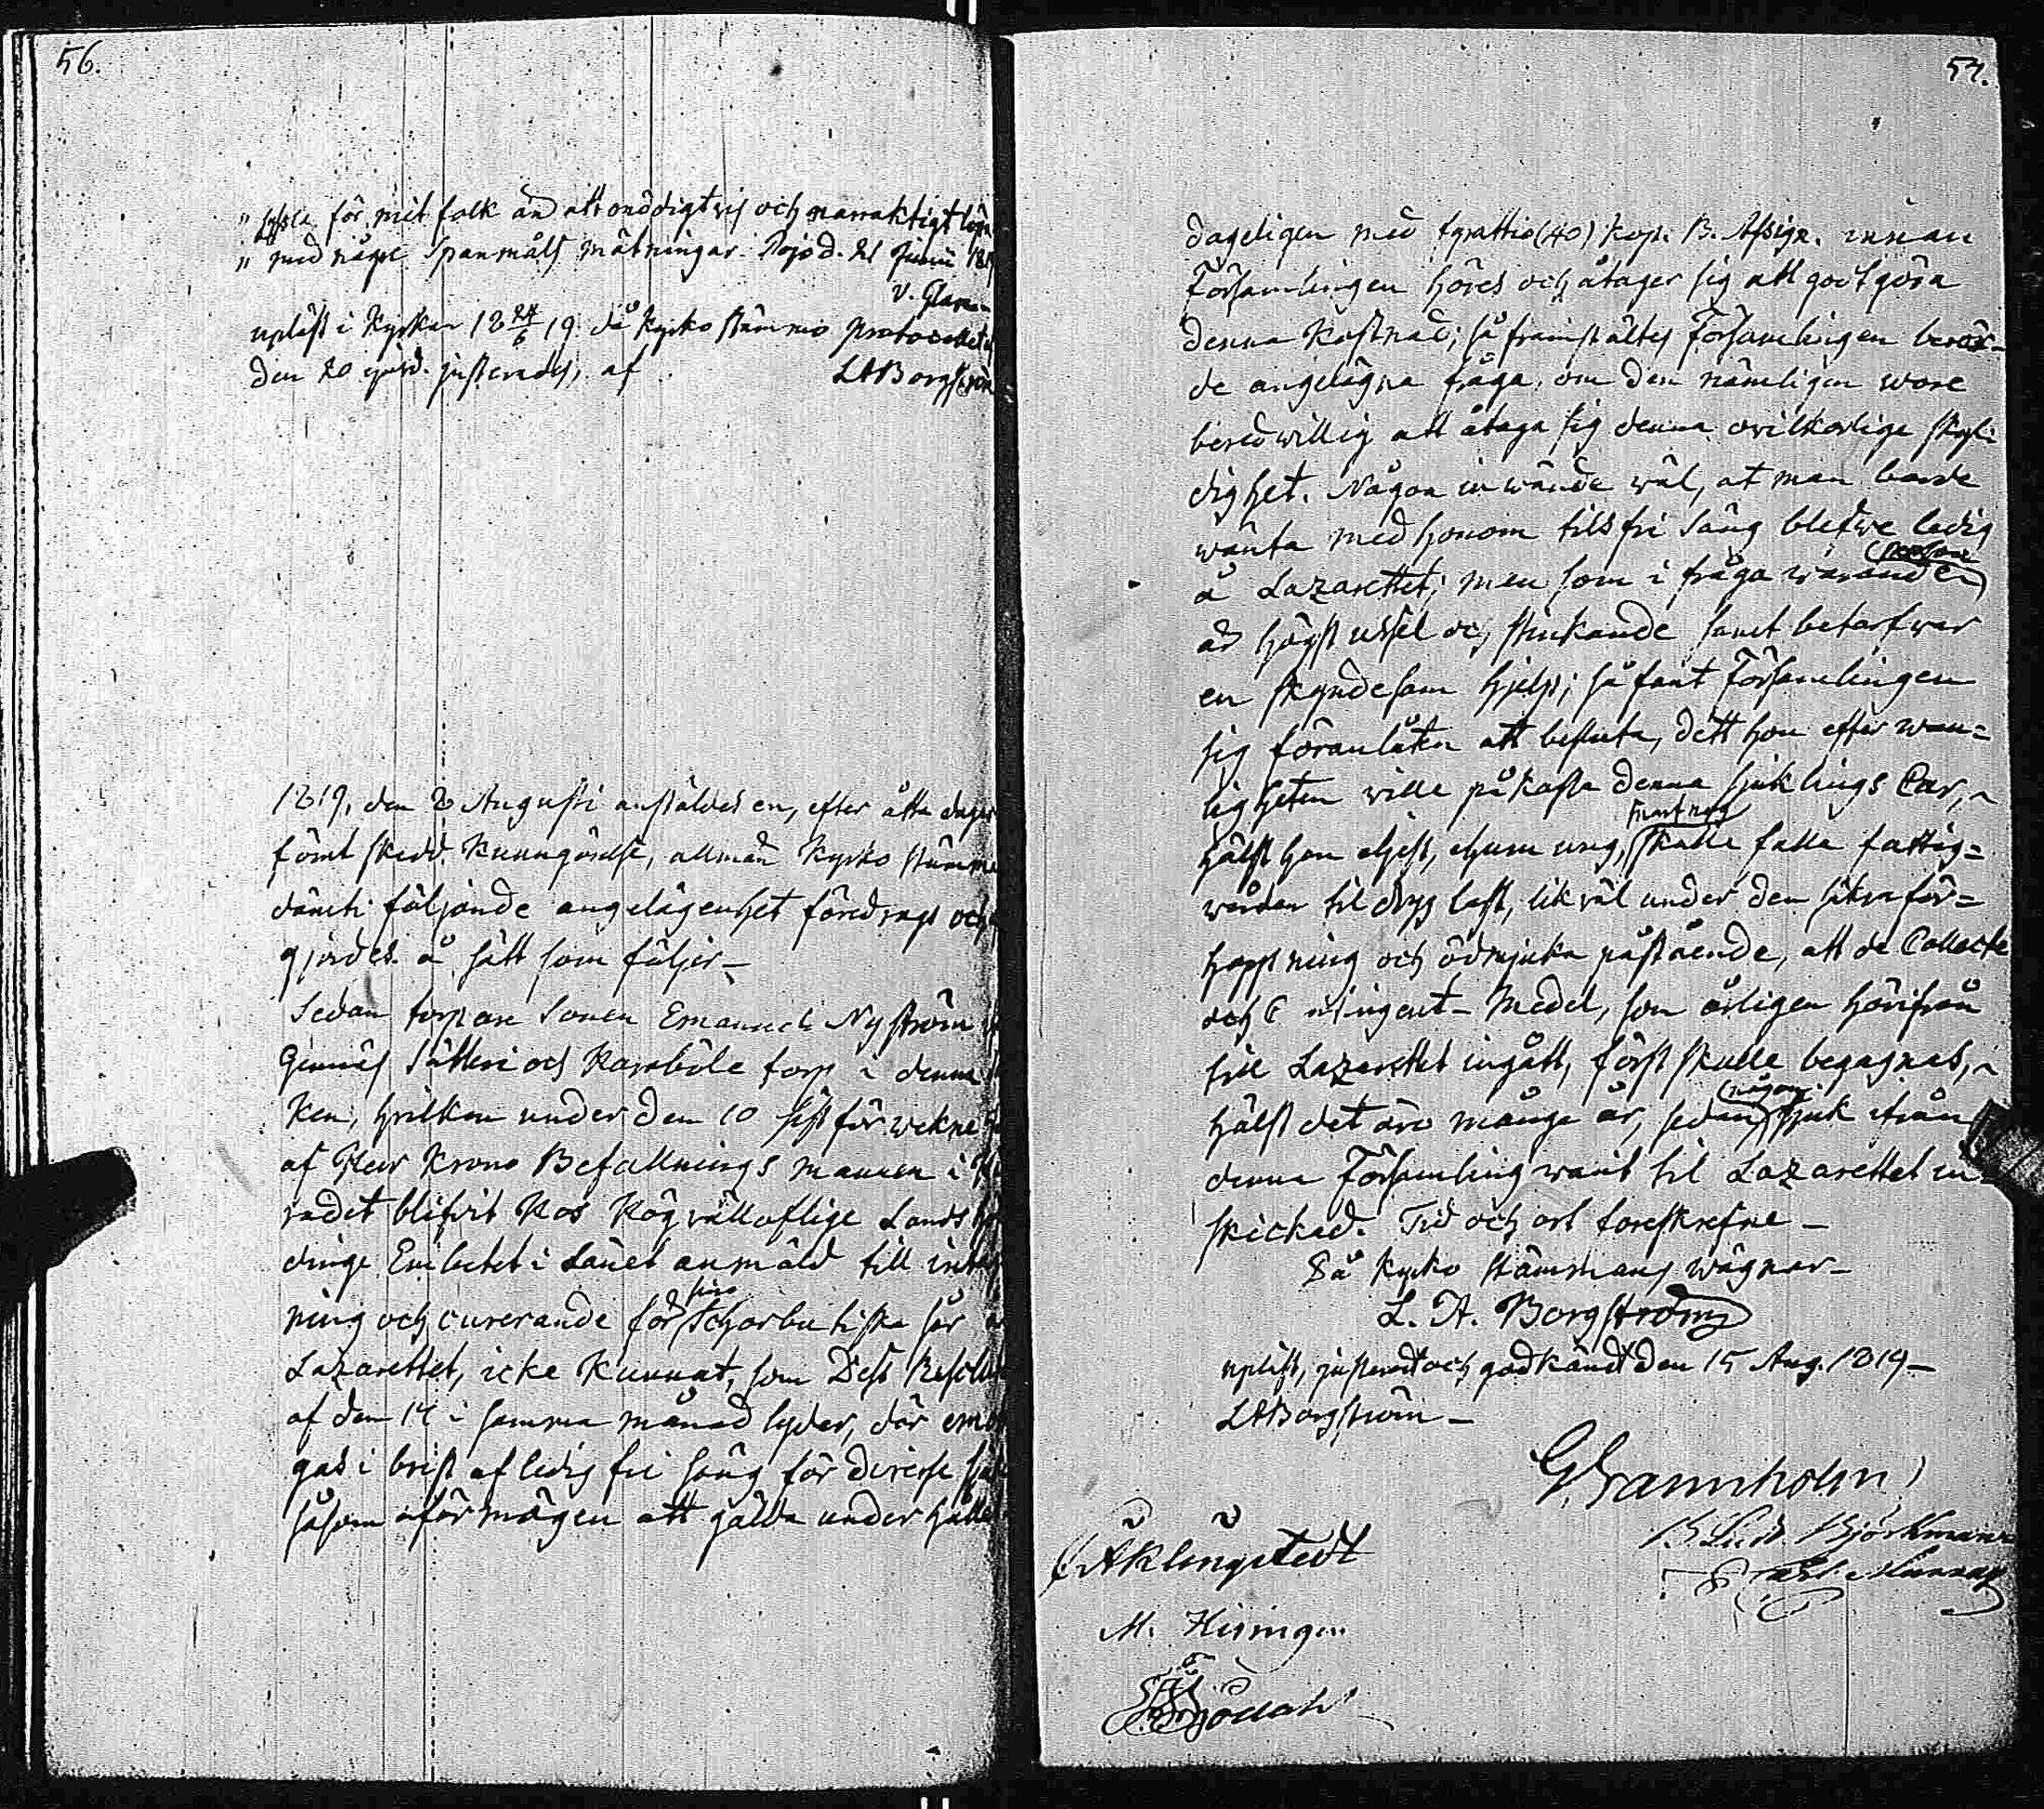 56.
" syssla för mit folk än att onödigtvis och narraktigt löpa
" med någre Spanmåls mätningar. Pojo d. 21 Junii 1819
V. Glan-
upläst i Kyrkan 18 24/6 19. då Kyrko stämmo Protocollet af
den 20 ejusd. justerades, af LABorgström
1819, den 8 Augusti anstäldes en, efter åtta dagar
förut skedd Kunngörelse, allmän Kyrko stämma
därvid följande angelägenhet föredrogs och
gjordes å sätt som följer_
Sedan torpare Sonen Emanuel Nyström
Gennäs Sätteri och Karaböle torp i denna
ken, hvilken under den 10 sistförwekne
af Herr Krono Befallnings mannen i
radet blifvit hos Högvälloflige Lands hö
dinge Embetet i Länet anmäld till intag
ning och curerande för sine Schorbutiska sår
Lazarettet, icke kunnat, som Dess Resolution
af den 14 i samma månad lyder, där emot
gas i brist af ledig fri säng för diverse sjuk
såsom oförmögen att gälda underhållet
57.
dageligen med fyrattio (40) kop. B. Assign. innan
Församlingen höres och åtager sig att godtgöra
denna Kostnad; så framstältes Församlingen berör-
de angelägna fråga, om den nämligen wore
beredwillig att åtaga sig denna ovilkorlige skyl-
dighet. Någon inwände wäl, at man borde
wänta med honom tils fri säng blefwe ledig
å Lazarettet; men som i fråga warande person
är högst ussel och stinkande samt betarfwar
en skyndesam hjelp; så fant Församlingen
sig föranlåten att besluta, dett hon efter wan-
ligheten wille påkosta denna sjuklings Cur,
hälst han eljest, ehuru ung, snart nog skulle falla fattig-
wården til dryg last, likväl under den säkra för-
hoppning och ödmjuka påstående, att de Collecte
och Contingent-Medel, som årligen härifrån
till Lazarettet ingått, först skulle begagnas,
hälst det äro månge år, sedan någon sjuk ifrån
denna Församling warit til Lazarettet in-
skickad. Tid och ort föreskrefne _
På Kyrko stämmans wägnar_
L. A. Borgström
upläst, justerat och godkändt den 15 Aug. 1819_
LABorgström_
G. Tammholm
Björkman
Klingstedt
M. Hisinger